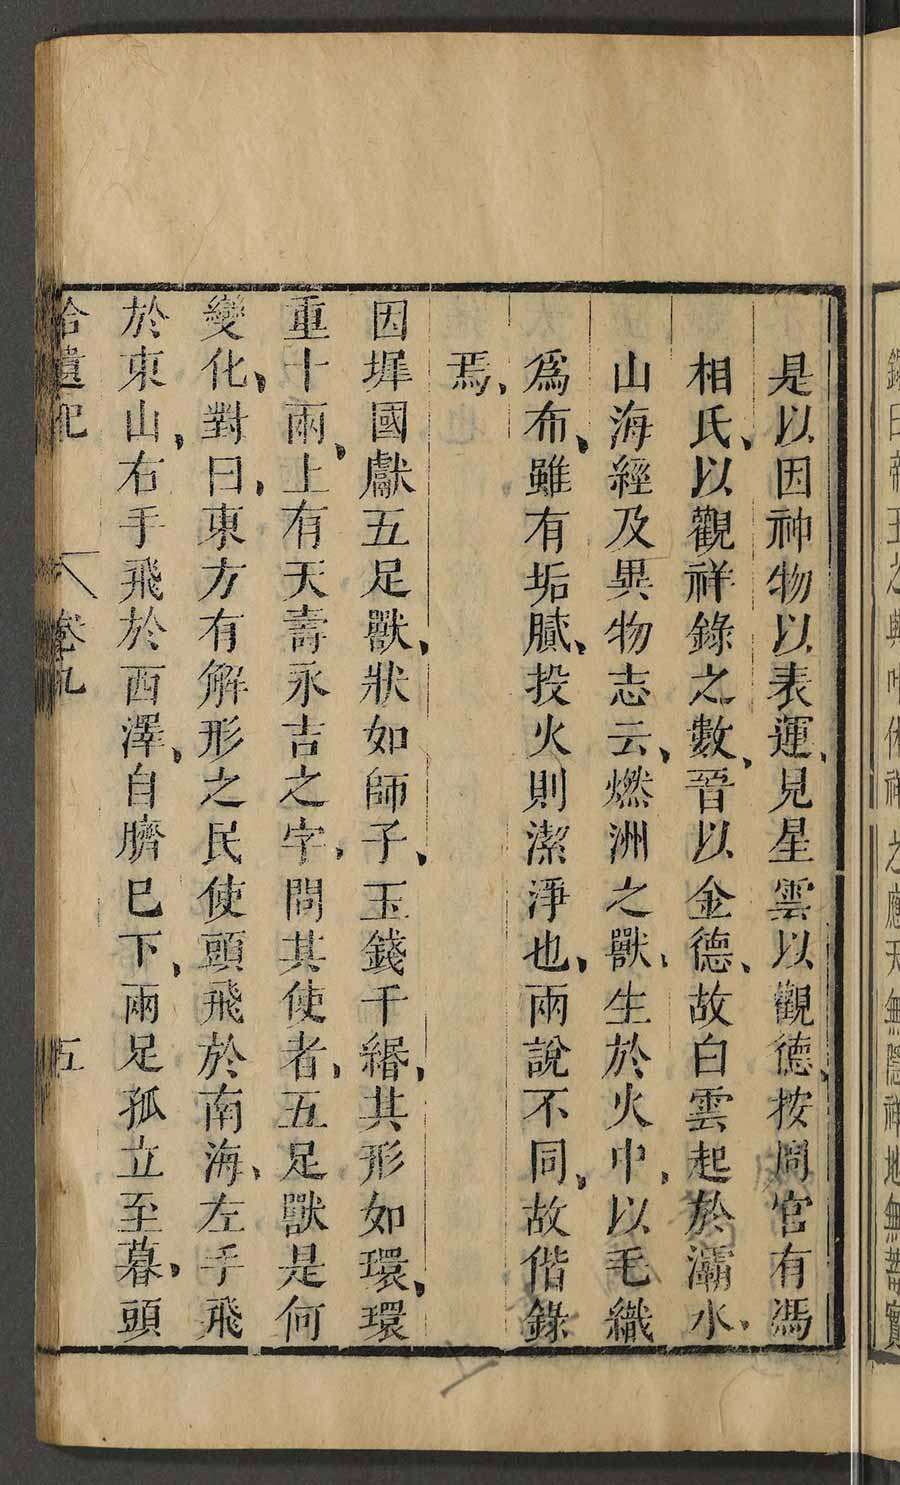 錄曰帝王之興叶休祥之應天無隱祥地無蓄寶
是以因神物以表運見星雲以觀德按周官有馮
相氏以觀祥錄之數晉以金德故白雲起於灞水
山海經及異物志云燃洲之獸生於火中以毛織
爲布雖有垢膩投火則潔淨也兩說不同故偕錄
焉
因墀國獻五足獸狀如師子玉錢千緡其形如環環
重十兩上有天壽永吉之字問其使者五足獸是何
變化對曰東方有解形之民使頭飛於南海左手飛
於東山右手飛於西澤自臍已下兩足孤立至暮頭
拾遺記 卷九 五